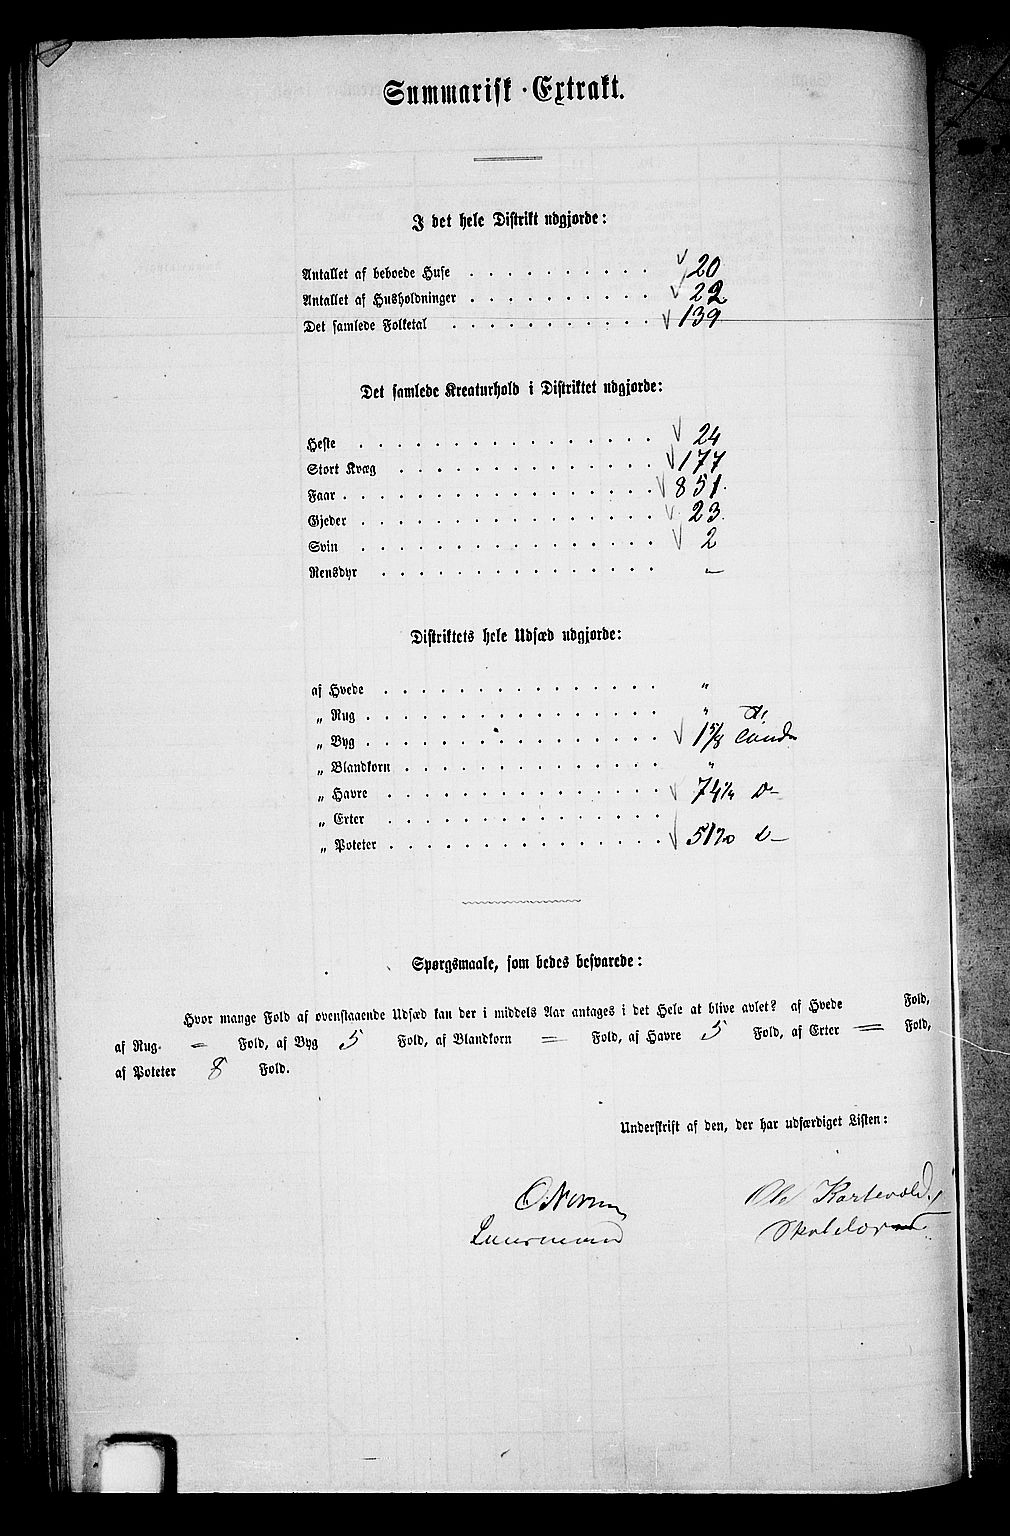 Summarisk Extrakt.
I det hele Distrikt udgjorde:
Antallet af beboede Huse 20
Antallet af Husholdninger 22
Det samlede Folketal 139
Det samlede Kreaturhold i Distriktet udgjorde:
Heste 24
Stort Kvæg 177
Faar 851.
Gjeder 23.
Svin 2
Rensdyr –
Distriktets hele Udsæd udgjorde:
af Hvede "
" Rug "
" Byg 1 5/8
" Blandkorn "
" Havre 74 1/4 D–
" Erter
" Poteter D–
Spørgsmaale, som bedes besvarede:
Hvor mange Fold af ovenstaaende Udsæd kan der i middels Aar antages i det Hele at blive avlet? af Hvede Fold,
af Rug = Fold, af Byg 5 Fold, af Blandkorn = Fold, af Havre 5 Fold, af Erter = Fold,
af Poteter 8 Fold.
Underskrift af den, der har udfærdiget Listen:
Ole Kartevold,
Lensmand